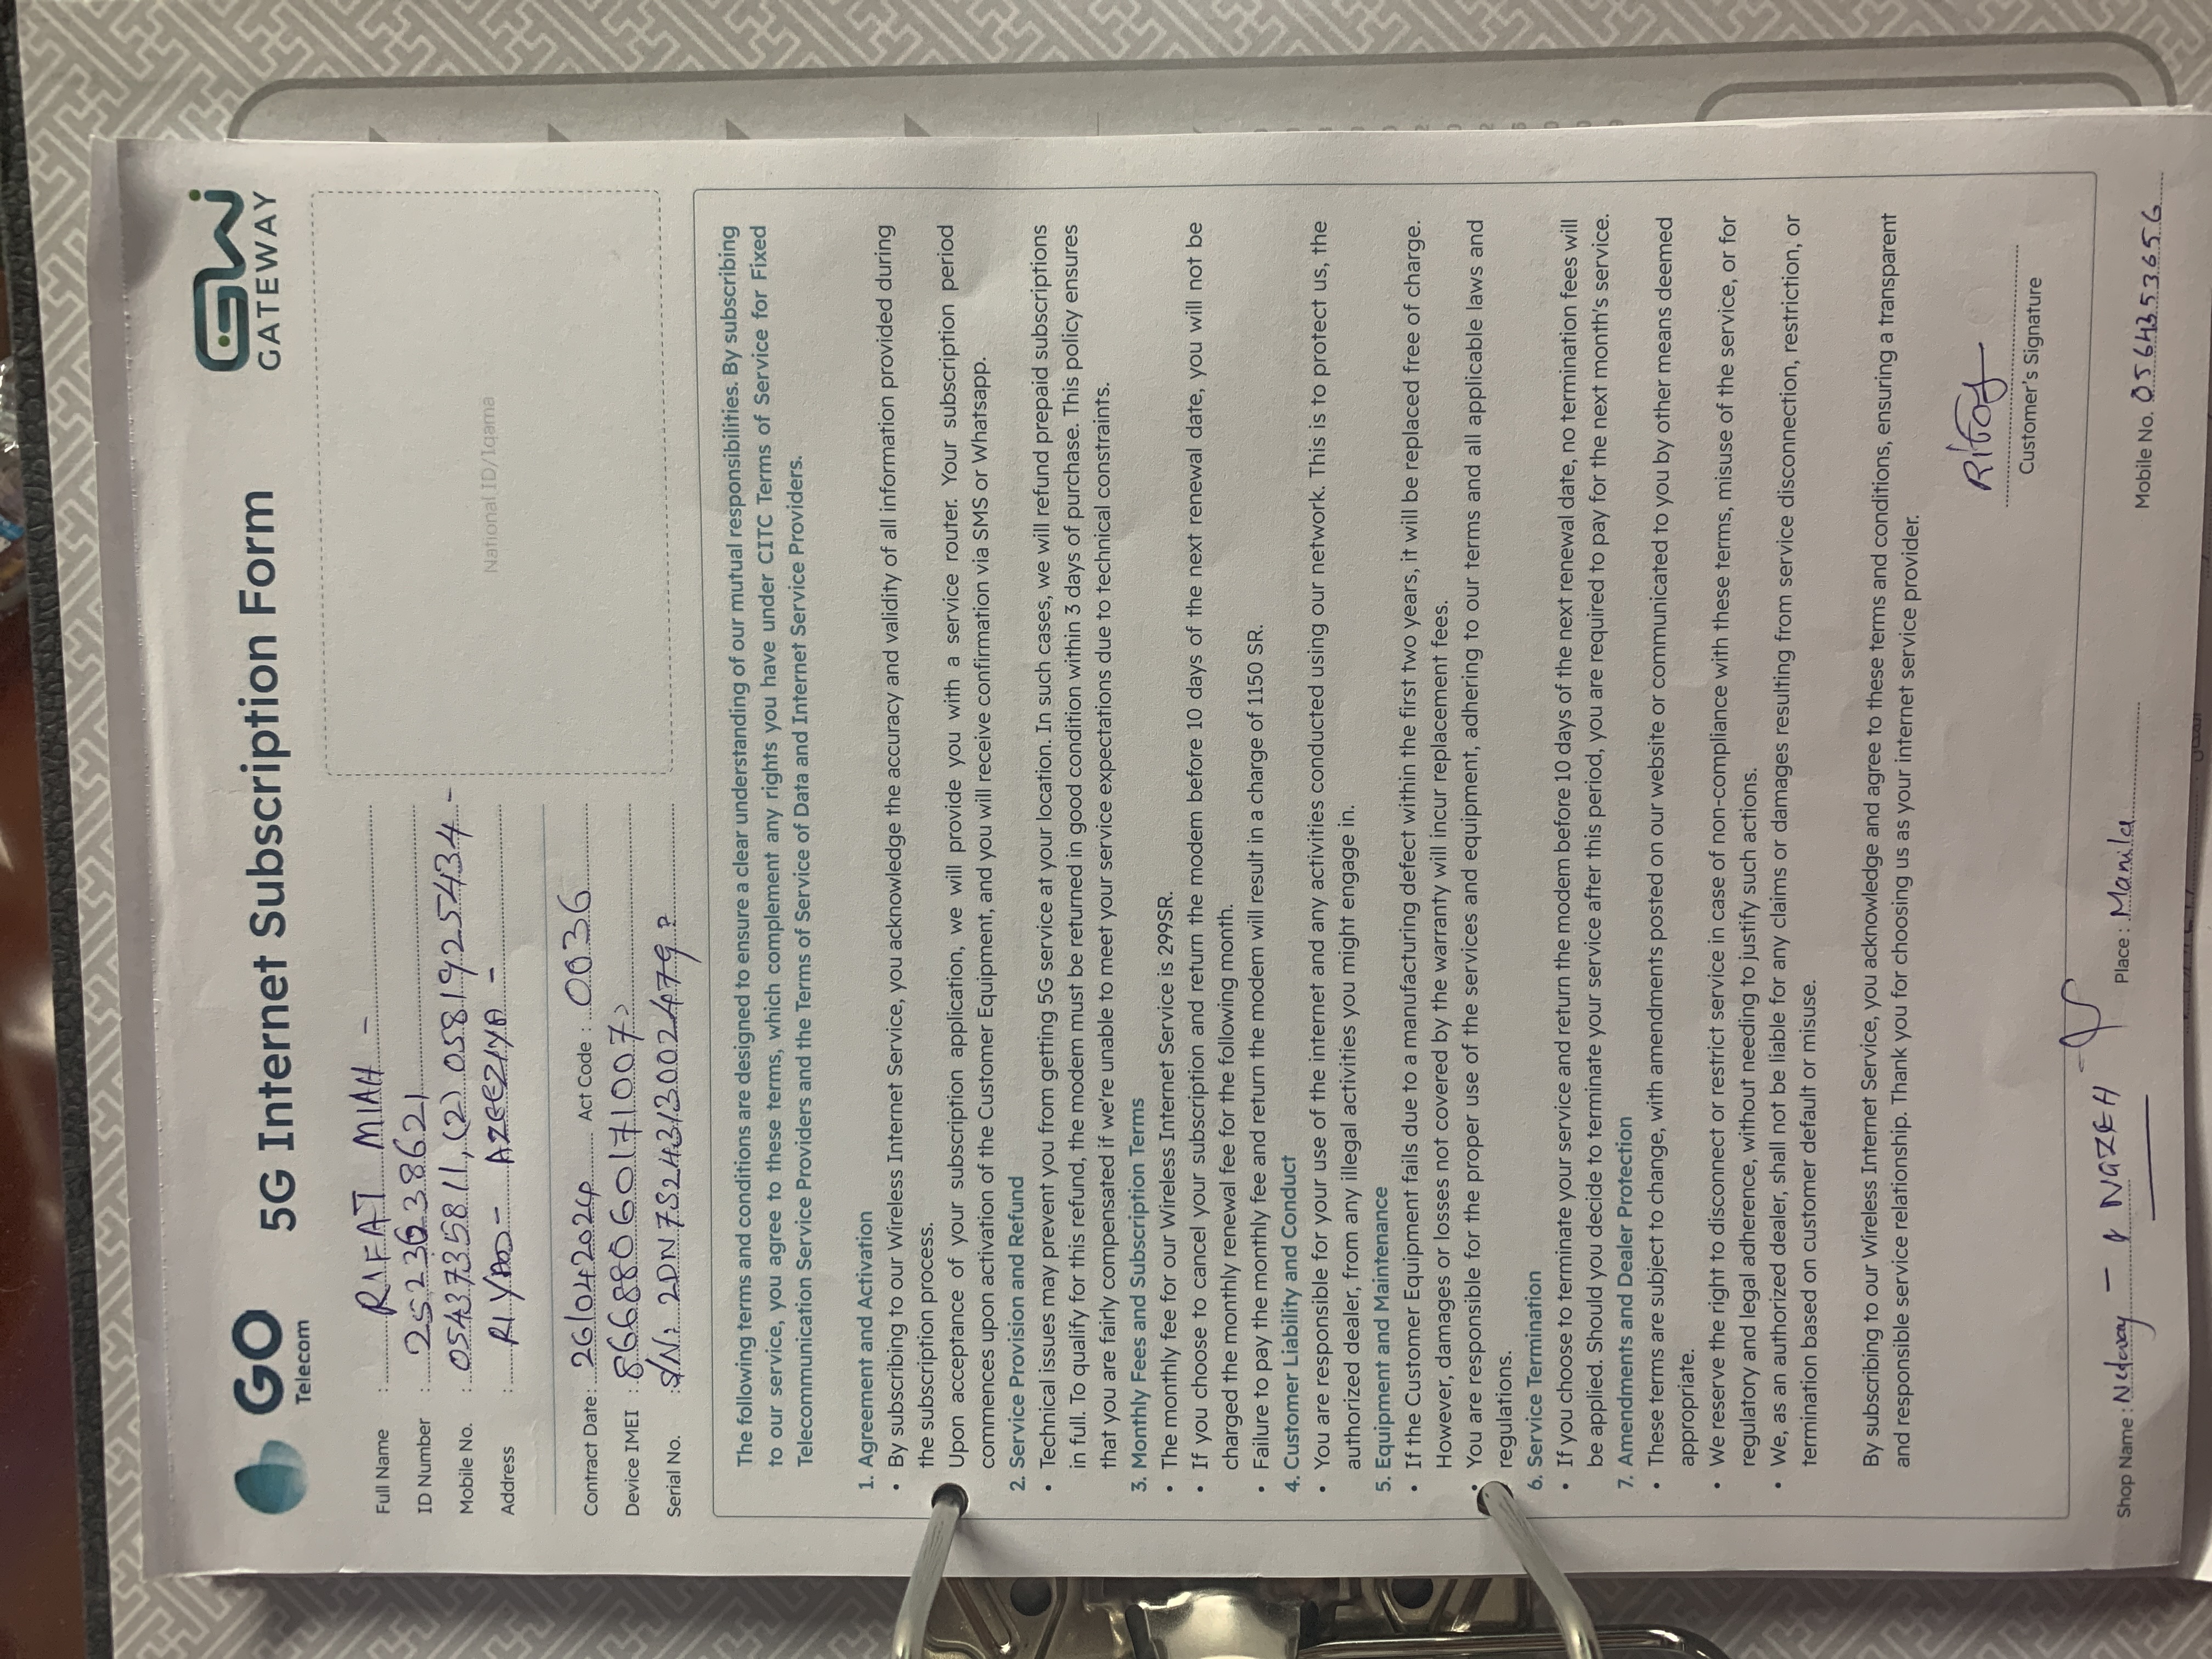 GO Telecom
5G Internet Subscription Form
GATEWAY
Full Name : RIFAT MIAH -
ID Number : 2523638621
Mobile No. : 0543735811, (2) 0581925434 -
Address : RIYADO - AZEEZIYA -
National ID/Iqama
Contract Date : 26/04/2024 Act Code : 0036
Device IMEI : 86688060171007
Serial No. : S/N: 2DN7S24313002479
The following terms and conditions are designed to ensure a clear understanding of our mutual responsibilities. By subscribing
to our service, you agree to these terms, which complement any rights you have under CITC Terms of Service for Fixed
Telecommunication Service Providers and the Terms of Service of Data and Internet Service Providers.
1. Agreement and Activation
• By subscribing to our Wireless Internet Service, you acknowledge the accuracy and validity of all information provided during
the subscription process.
Upon acceptance of your subscription application, we will provide you with a service router. Your subscription period
commences upon activation of the Customer Equipment, and you will receive confirmation via SMS or Whatsapp.
2. Service Provision and Refund
• Technical issues may prevent you from getting 5G service at your location. In such cases, we will refund prepaid subscriptions
in full. To qualify for this refund, the modem must be returned in good condition within 3 days of purchase. This policy ensures
that you are fairly compensated if we're unable to meet your service expectations due to technical constraints.
3. Monthly Fees and Subscription Terms
• The monthly fee for our Wireless Internet Service is 299SR.
• If you choose to cancel your subscription and return the modem before 10 days of the next renewal date, you will not be
charged the monthly renewal fee for the following month.
• Failure to pay the monthly fee and return the modem will result in a charge of 1150 SR.
4. Customer Liability and Conduct
• You are responsible for your use of the internet and any activities conducted using our network. This is to protect us, the
authorized dealer, from any illegal activities you might engage in.
5. Equipment and Maintenance
• If the Customer Equipment fails due to a manufacturing defect within the first two years, it will be replaced free of charge.
However, damages or losses not covered by the warranty will incur replacement fees.
• You are responsible for the proper use of the services and equipment, adhering to our terms and all applicable laws and
regulations.
6. Service Termination
• If you choose to terminate your service and return the modem before 10 days of the next renewal date, no termination fees will
be applied. Should you decide to terminate your service after this period, you are required to pay for the next month's service.
7. Amendments and Dealer Protection
• These terms are subject to change, with amendments posted on our website or communicated to you by other means deemed
appropriate.
• We reserve the right to disconnect or restrict service in case of non-compliance with these terms, misuse of the service, or for
regulatory and legal adherence, without needing to justify such actions.
• We, as an authorized dealer, shall not be liable for any claims or damages resulting from service disconnection, restriction, or
termination based on customer default or misuse.
By subscribing to our Internet Service, you acknowledge and agree to these terms and conditions, ensuring a transparent
and responsible service relationship. Thank you for choosing us as your internet service provider.
Rifat
Customer's Signature
Shop Name : - NAZEH Place : Manila Mobile No. 0564353656